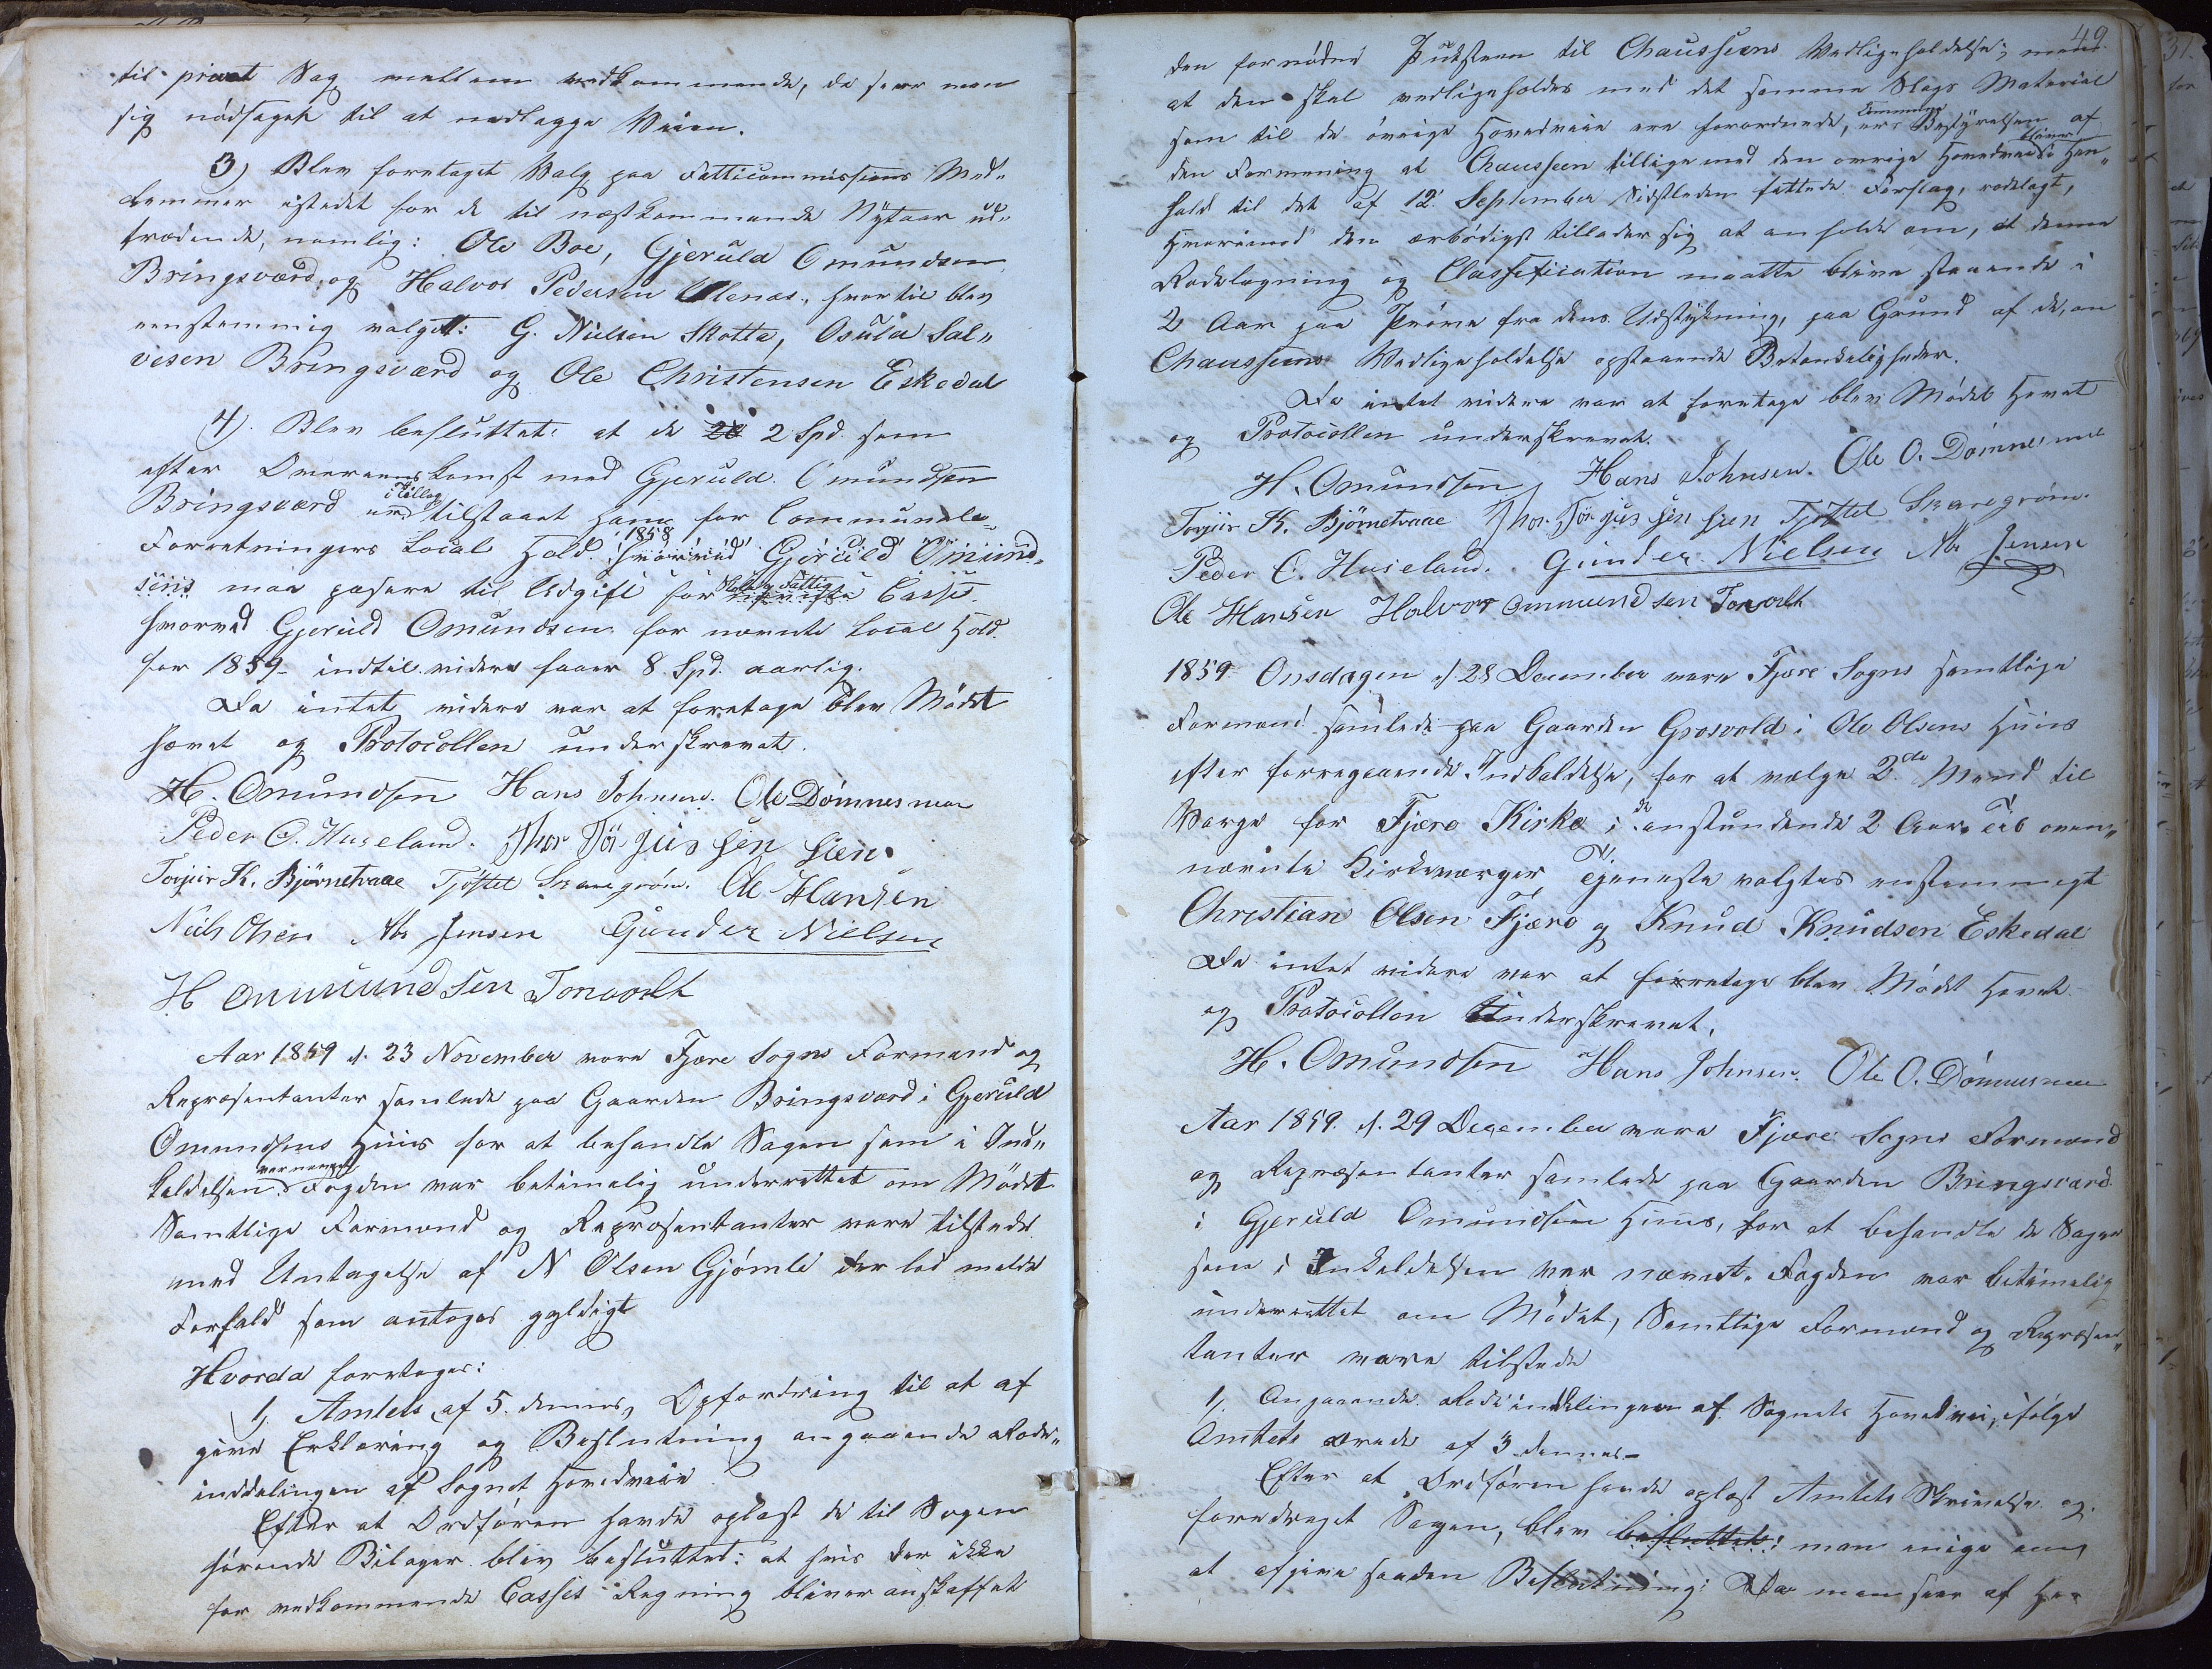 til privat Sag mellem vedkommende, da seer man
sig nødsaget til at nedlægge Veien.
3) Blev foretaget Valg paa Fatticommissiens Med„
lemmer istedet for de til næstkommende Nytaar ud„
trædende, nemlig: Ole Boe, Gjeruld Omundsen
Bringsværd, og Halvor Pedersen, hvortil blev
eenstemmig valgt: G. Nielsen Skotta, Osuld Sal„
vesen Bringsværd og Ole Christensen Eskedal
4) Blev besluttet: at de 2 Spd. som
efter Overeenskomst med Gjeruld Omundsen
Bringsværd i Tillæg tilstaaet ham for Communale
Forretningers Local Hold 1858 Gjeruld Omund„
sens maa passere til Udgift for Fattig Casse
hvorved Gjeruld Omundsen for nævnte Local Hold
for 1859 indtil videre faaer 8 Spd. aarlig.
Da intet videre var at foretage blev Mødet
hævet og Protocollen underskrevet.
H. Omundsen Hans Johnsen. Ole Dømnesmoe
Peder O. Huseland. Thor Törjussen Sien.
Torjus K. Bjørnetvane Tjøstel Skaregrøm. Ole Hansen
Niels Olsen Ab Jensen Gunder Nielsen
H Ommundsen Torvolt
Aar 1859 d. 23 November vare Fjære Sogns Formænd og
Repræsentanter samlede paa Gaarden Bringsværd i Gjeruld
Omundsens Huus for at behandle Sagen som i Ind„
kaldelsen var nævnt. Fogden var betimelig underrettet om Mødet
Samtlige Formænd og Repræsentanter vare tilstede
med Untagelse af N Olsen Gjømle der lod melde
Forfald som antoges gyldigt
Hvorda foretoges:
1, Amtets af 5. dennes, Opfordring til at af
give Erklæring og Beslutning angaaende Rode„
inddelingen af Sognet Hovedveie
Efter at Ordføren havde oplæst de til Sagen
hørende Bilager blev besluttet: at hvis der ikke
for vedkommende Casses Regning bliver anskaffet
49.
den fornødne Puksteen til Chausseens Vedligeholdelse;
at den skal vedligeholdes med det samme Slags Material
som til de øvrige Hovedveie ere forordnede, er Commune Bestyrelsen af
den Formening at Chausseen tillige med den øvrige Hovedvei bliver i Hen„
hold til det af 12. September Sidstleden fattede Forslag, rodelagt,
Hvorimod den ærbødigst tillader sig at anholde om, at denne
Rodelægning og Classification maatte blive staaende i
2 Aar paa Prøve fra dens Udstykning, paa Grund af de, om
Chausseens Vedligeholdelse opstaaende Betænkeligheder.
Da intet videre var at foretage blev Mødet Hevet
og Protocollen underskrevet.
H. Omundsen, Hans Johnsen. Ole O. Dømnesmoe
Torjus K. Bjørnetvane Thor Törjussen Sien Tjøstel Skaregrøm.
Peder O. Huseland. Gunder Nielsen Ab Jensen
Ole Hansen Halvor Ommundsen Torvolt
1859 Onsdagen d. 28 December vare Fjære Sogns samtlige
Formænd samlede paa Gaarden Grosvold i Ole Olsens Huus
efter forregaaende Indkaldelse, for at vælge 2de Mænd til
Værge for Fjære Kirke i de anstundende 2 Aar. Til oven„
nævnte Kirkeværger Tjeneste valgtes enstemmigt
Christian Olsen Fjære og Knud Knudsen Eskedal
Da intet videre var at foretage blev Mødet Hevet
og Protocollen Underskrevet.
H. Omundsen Hans Johnsen. Ole O. Dømnesmoe
Aar 1859. d. 29 December vare Fjære Sogns Formænd
og Repræsentanter samlede paa Gaarden Bringsværd
i Gjeruld Omundsens Huus, for at behandle de Sager
som i Inkaldelsen var nævnt. Fogden var betimelig
underrettet om Mødet, Samtlige Formænd og Repræsen„
tanter vare tilstede
1, Angaaende Rodeinddelingen af Sognets Hovedvei, ifølge
Amtets ærede af 3 dennes-
Efter at Ordføren havde oplæst Amtets Skrivelse og
foredraget Sagen, blev besluttet: man enige om
at afgive saaden Beslutning: Da man seer af